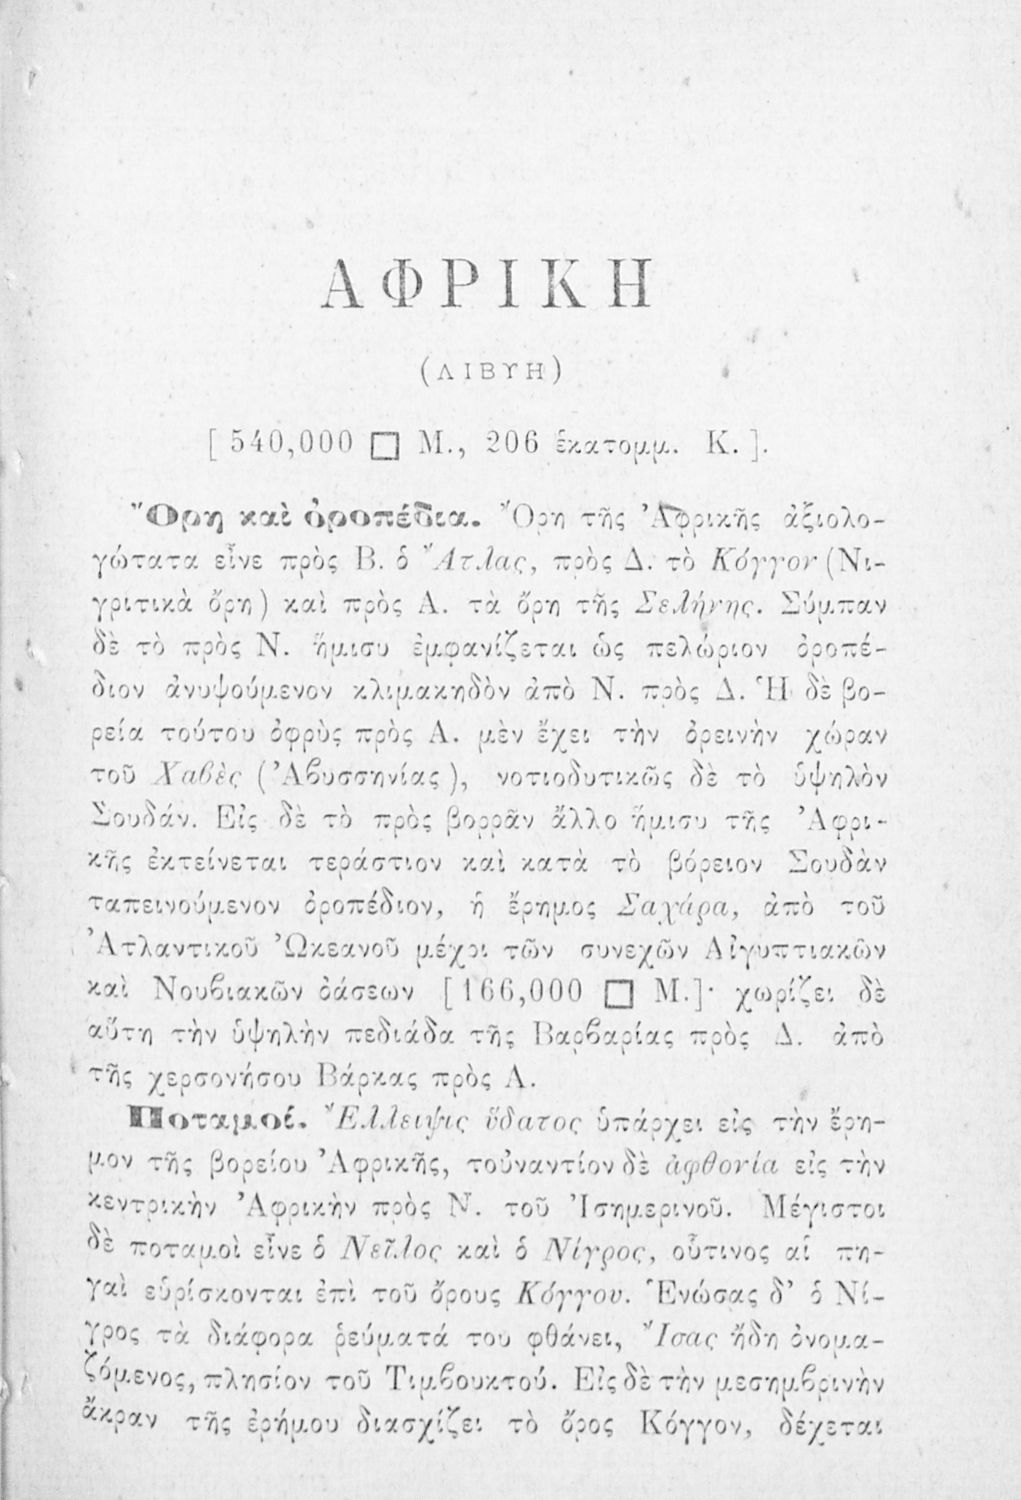 ΑΦΡΙΚΗ
(ΛΙΒΥΗ)
[ 540,000 □ Μ., 206 ἑκατομμ. Κ. ].
Ὄρη καὶ ὀροπέδια. Ὄρη τῆς Ἀφρικῆς ἀξιολο-
γώτατα εἶνε πρὸς Β. ὁ Ἄτλας, πρὸς Δ. τὸ Κόγγον (Νι-
γριτικὰ ὄρη) καὶ πρὸς Α. τὰ ὄρη τῆς Σελήνης. Σύμπαν
δὲ τὸ πρὸς Ν. ἥμισυ ἐμφανίζεται ὡς πελώριον ὀροπέ-
διον ἀνυψούμενον κλιμακηδὸν ἀπὸ Ν. πρὸς Δ. Ἡ δὲ βο-
ρεία τούτου ὀφρὺς πρὸς Α. μὲν ἔχει τὴν ὀρεινὴν χώραν
τοῦ Χαβὲς (Ἀβυσσηνίας), νοτιοδυτικῶς δὲ τὸ ὑψηλὸν
Σουδάν. Εἰς δὲ τὸ πρὸς βορρᾶν ἄλλο ἥμισυ τῆς Ἀφρι-
κῆς ἐκτείνεται τεράστιον καὶ κατὰ τὸ βόρειον Σουδὰν
ταπεινούμενον ὀροπέδιον, ἡ ἔρημος Σαχάρα, ἀπὸ τοῦ
Ἀτλαντικοῦ Ὠκεανοῦ μέχρι τῶν συνεχῶν Αἰγυπτιακῶν
καὶ Νουβιακῶν ὀάσεων [166,000 □ Μ.]· χωρίζει δὲ
αὕτη τὴν ὑψηλὴν πεδιάδα τῆς Βαρβαρίας πρὸς Δ. ἀπὸ
τῆς χερσονήσου Βάρκας πρὸς Α.
Ποταμοί. Ἔλλειψις ὕδατος ὑπάρχει εἰς τὴν ἔρη-
μον τῆς βορείου Ἀφρικῆς, τοὐναντίον δὲ ἀφθονία εἰς τὴν
κεντρικὴν Ἀφρικὴν πρὸς Ν. τοῦ Ἰσημερινοῦ. Μέγιστοι
δὲ ποταμοὶ εἶνε ὁ Νεῖλος καὶ ὁ Νίγρος, οὗτινος αἱ πη-
γαὶ εὑρίσκονται ἐπὶ τοῦ ὄρους Κόγγου. Ἑνώσας δ' ὁ Νί-
γρος τὰ διάφορα ῥεύματά του φθάνει, Ἴσας ἤδη ὀνομα-
ζόμενος, πλησίον τοῦ Τιμβουκτού. Εἰς δὲ τὴν μεσημβρινὴν
ἄκραν τῆς ἐρήμου διασχίζει τὸ ὄρος Κόγγον, δέχεται